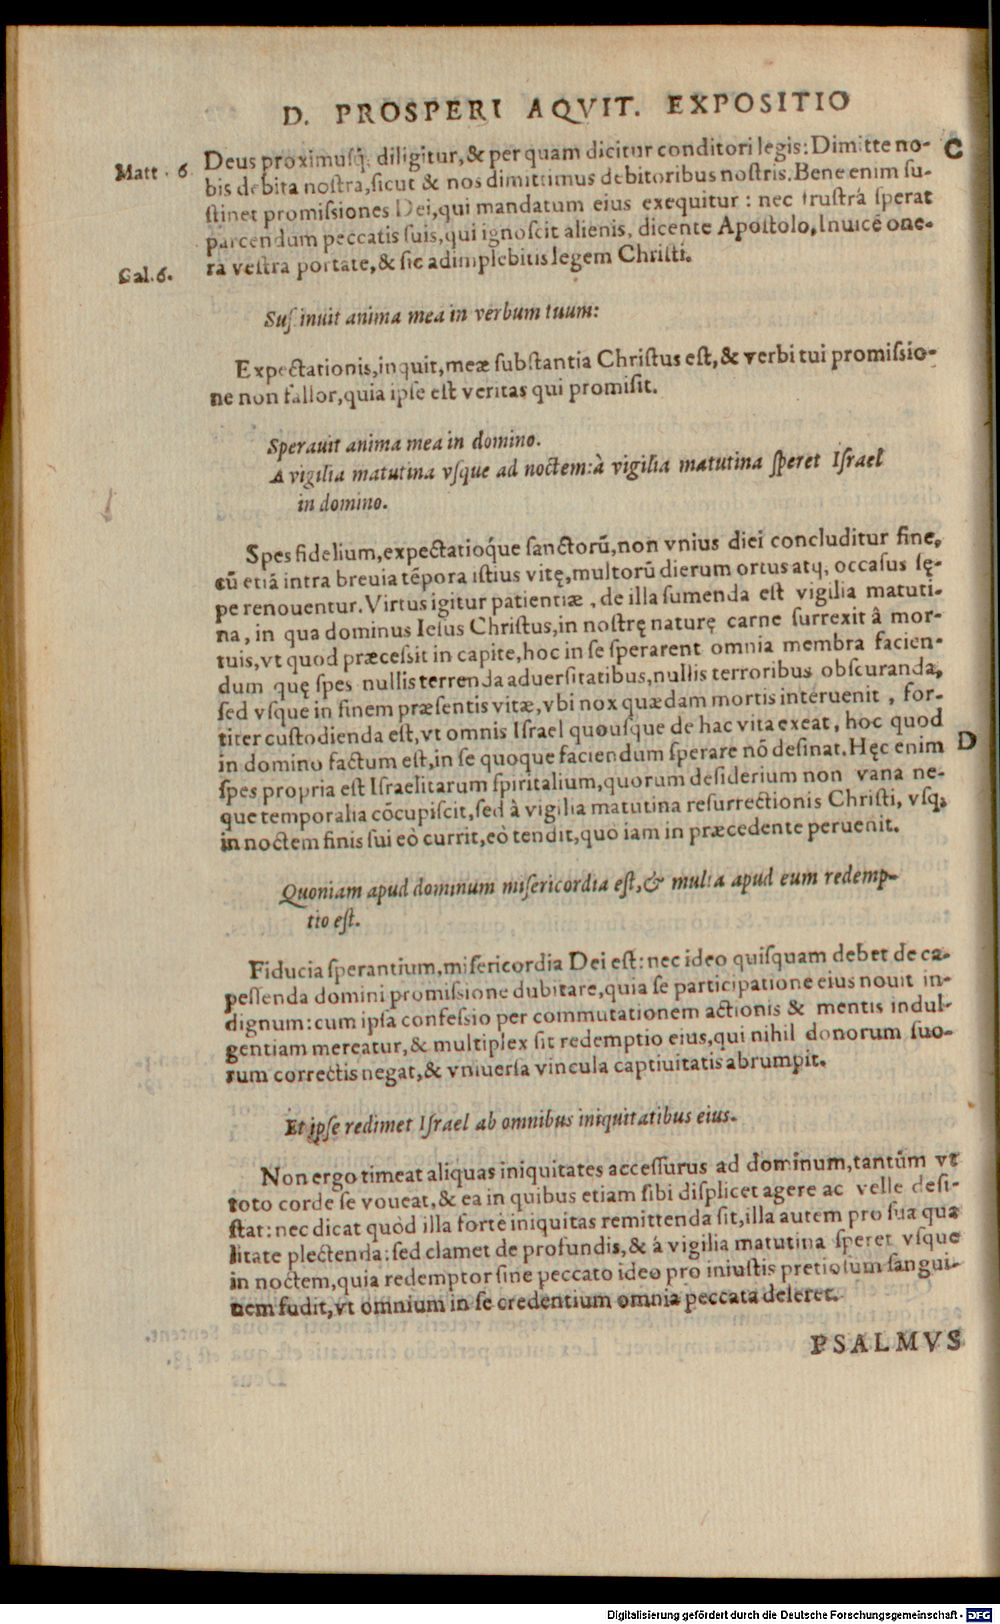 D. PROSPERI AQVIT. EXPOSITIO
Matt. 6 Deus proximusq́; diligitur, & per quam dicitur conditori legis: Dimitte no- C
bis debita nostra, sicut & nos dimittimus debitoribus nostris. Bene enim su-
stinet promissiones Dei, qui mandatum eius exequitur: nec frustrá sperat
parcendum peccatis suis, qui ignoscit alienis, dicente Apostolo, Inuicē one-
Gal. 6. ra vestra portate, & sic adimplebitis legem Christi.
Sustinuit anima mea in verbum tuum:
Expectationis, inquit, meæ substantia Christus est, & verbi tui promissio-
ne non fallor, quia ipse est veritas qui promisit.
Sperauit anima mea in domino.
A vigilia matutina vsque ad noctem: à vigilia matutina speret Israel
in domino.
Spes fidelium, expectatioq́ue sanctorū, non vnius diei concluditur fine,
cū etiā intra breuia tēpora istius vitę, multorū dierum ortus atq; occasus sę-
pe renouentur. Virtus igitur patientiæ, de illa sumenda est vigilia matuti-
na, in qua dominus Iesus Christus, in nostrę naturę carne surrexit â mor-
tuis, vt quod præcessit in capite, hoc in se sperarent omnia membra facien-
dum quę spes nullis terrenda aduersitatibus, nullis terroribus obscuranda,
sed vsque in finem præsentis vitæ, vbi nox quædam mortis interuenit, for-
titer custodienda est, vt omnis Israel quousque de hac vita exeat, hoc quod
in domino factum est, in se quoque faciendum sperare nō desinat. Hęc enim D
spes propria est Israelitarum spiritalium, quorum desiderium non vana ne-
que temporalia cōcupiscit, sed à vigilia matutina resurrectionis Christi, vsq;
in noctem finis sui eò currit, eò tendit, quo iam in præcedente peruenit.
Quoniam apud dominum misericordia est, & multa apud eum redemp-
tio est.
Fiducia sperantium, misericordia Dei est: nec ideo quisquam debet de ca-
pessenda domini promissione dubitare, quia se participatione eius nouit in-
dignum: cum ipsa confessio per commutationem actionis & mentis indul-
gentiam mereatur, & multiplex sit redemptio eius, qui nihil donorum suo-
rum correctis negat, & vniuersa vincula captiuitatis abrumpit.
Et ipse redimet Israel ab omnibus iniquitatibus eius.
Non ergo timeat aliquas iniquitates accessurus ad dominum, tantûm vt
toto corde se voueat, & ea in quibus etiam sibi displicet agere ac velle desi-
stat: nec dicat quòd illa forte iniquitas remittenda sit, illa autem pro sua qua
litate plectenda: sed clamet de profundis, & á vigilia matutina speret vsque
in noctem, quia redemptor sine peccato ideo pro iniustis pretiosum sangui-
nem fudit, vt omnium in se credentium omnia peccata deleret.
PSALMVS
Digitalisierung gefördert durch die Deutsche Forschungsgemeinschaft - DFG